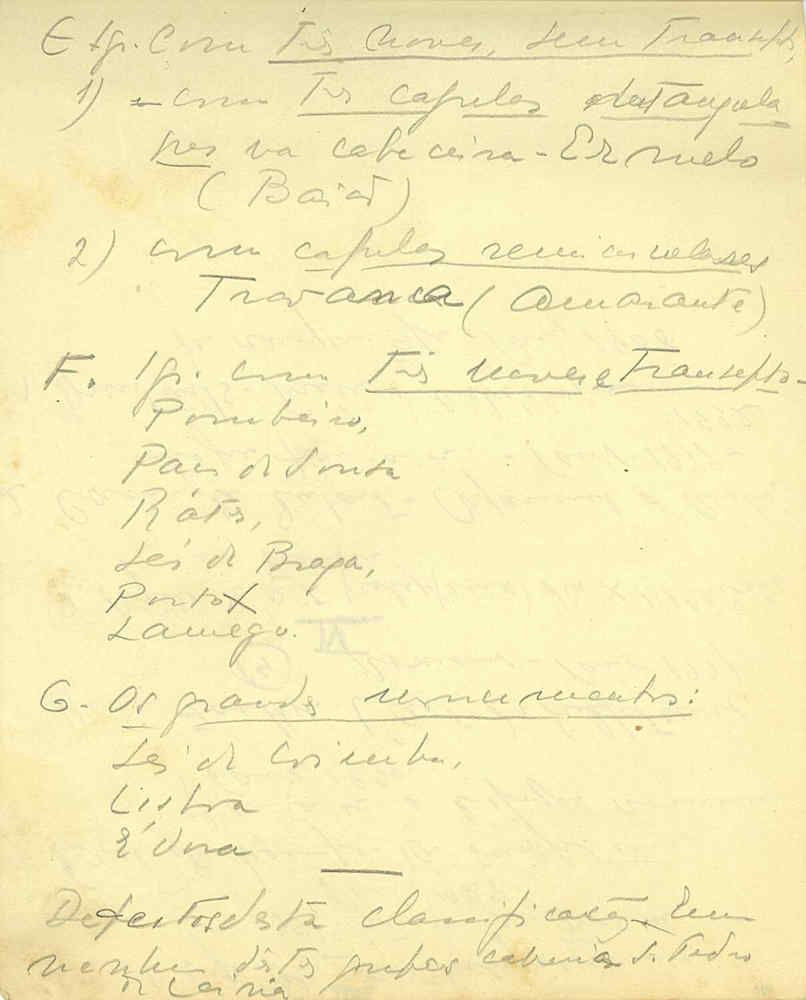 E Igr. com três naves, sem Transepto,
1) – com três capelas rectangula
res na cabeceira - Ermelo
(Baião)
2) com capelas semicirculares
Travanca (Amarante)
F. Igr. com três naves e Transepto -
Pombeiro,
Paço de Sousa
Rates,
Sés de Braga,
Porto X
Lamego.
G - Os grandes monumentos:
Sés de Coimbra,
Lisboa
Évora
Defeitos desta classificação. Em
nenhum destes grupos caberia S. Pedro
de Leiria